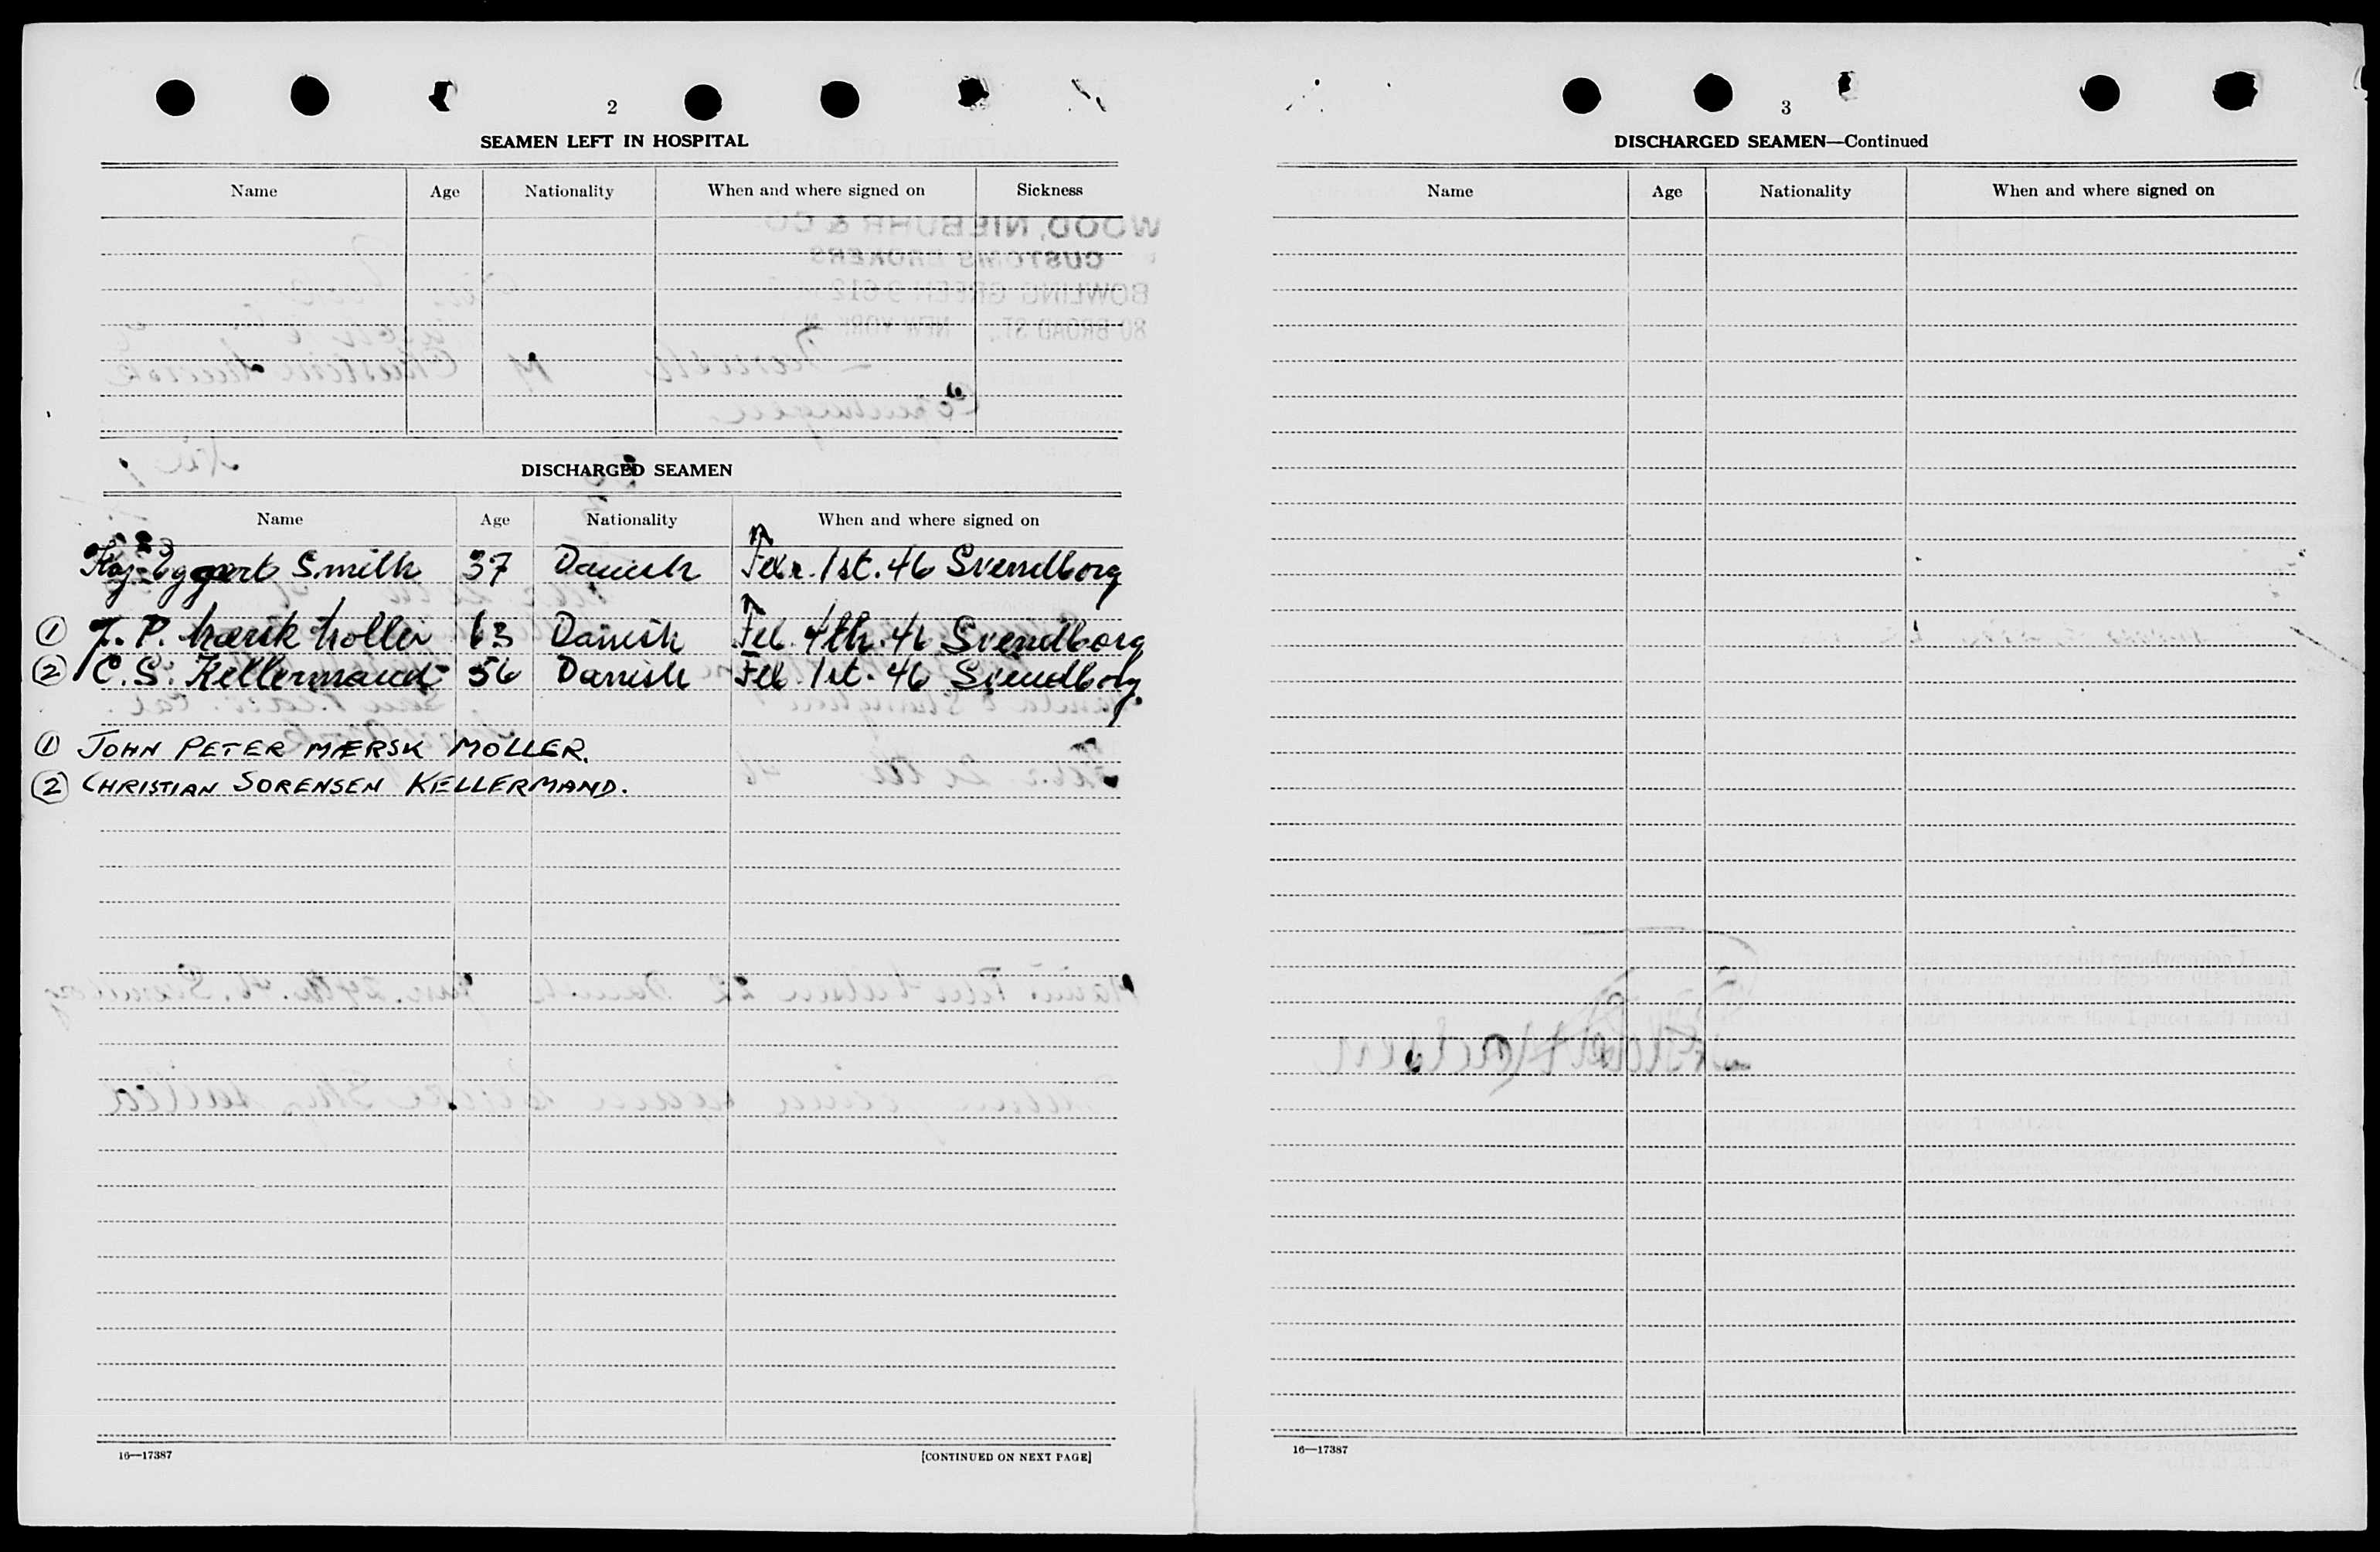 2
SEAMEN LEFT IN HOSPITAL
Name Age Nationality When and where signed on Sickness
DISCHARGED SEAMEN
Name Age Nationality When and where signed on
Kaj Eggert Smith 37 Danish Febr. 1st. 46 Svendborg
① J. P. Mærsk Moller 63 Danish Feb. 4th. 46 Svendborg
② C. S. Kellermand 56 Danish Feb. 1st. 46 Svendborg
① JOHN PETER MÆRSK MOLLER.
② CHRISTIAN SORENSEN KELLERMAND.
16—17387 [CONTINUED ON NEXT PAGE]
3
DISCHARGED SEAMEN—Continued
Name Age Nationality When and where signed on
16—17387